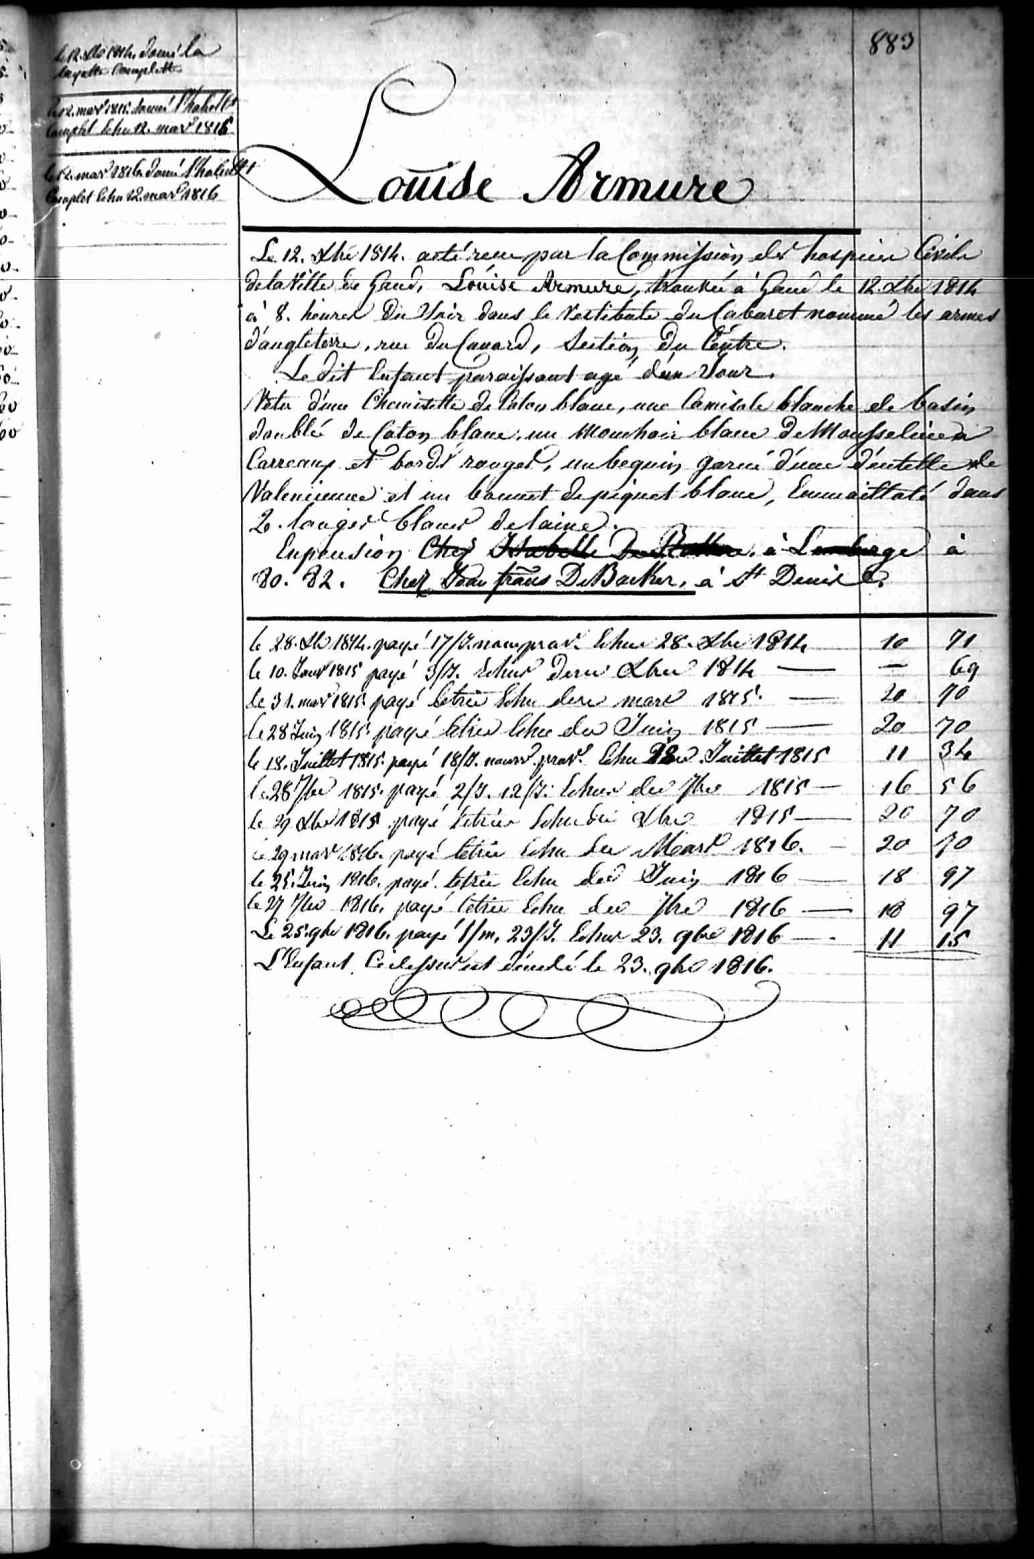 883
Le 12. Xbre 1814. donné la
layette Complette
le 12. mars 1815. donné l'habillt
Complet Echu 12. mars 1816
le 12. mars 1816. donné l'habillt
Complet Echu 12. mars 1816
Louise Armure
Le 12. Xbre 1814. a été reçu par la Commission des hospices Civils
de la Ville de Gand, Louise Armure, trouvée à Gand le 12. Xbre 1814
à 8. heures du Soir dans le Vestibule du Cabaret nommé les armes
d'angleterre, rue du Canard, Section du Centre.
Le dit Enfant paraissant agé d'un Jour.
Vetu d'une Chemisette de Coton blanc, une Camisole blanche de basin
doublé de Coton blanc, un Mouchoir blanc de Mousseline à
Carreaux et bords rouges, un beguin garni d'une dentelle de
Valencienne et un bonnet de piquet blanc, Emmailloté dans
2. langes blancs de laine.
En pension Chez Isabelle De à Lemberge à
80. 82. Chez Jean frans DeBacker, à St Denis
le 28. Xbre 1814. payé 17/J. nour prov. Echu 28. Xbre 1814 10 71
le 10. Janr 1815 payé 3/J. Echus dern Xbre 1814 — — 69
le 31. mars 1815 payé letrie Echu dern mars 1815. — 20 70
le 28 Juin 1815. payé letrie Echu der Juin 1815 — 20 70
le 18. Juillet 1815. payé 18/J. nourr. prov. Echu 18 Juillet 1815 11 34
le 28 7bre 1815. payé 2/J. 12/J. Echus der 7bre 1815 — 16 56
le 29 Xbre 1815 payé letrie Echu der Xbre 1815 — 20 70
le 29 mars 1816. payé letrie Echu der Mars 1816. — 20 70
le 25. Juin 1816. payé letrie Echu der Juin 1816 — 18 97
le 27 7bre 1816. payé letrie Echu der 7bre 1816 — 18 97
Le 25. 9bre 1816. payé 1/m. 23/J. Echus 23. 9bre 1816 — 11 15
L'Enfant Ci dessus est décédé le 23. 9bre 1816.